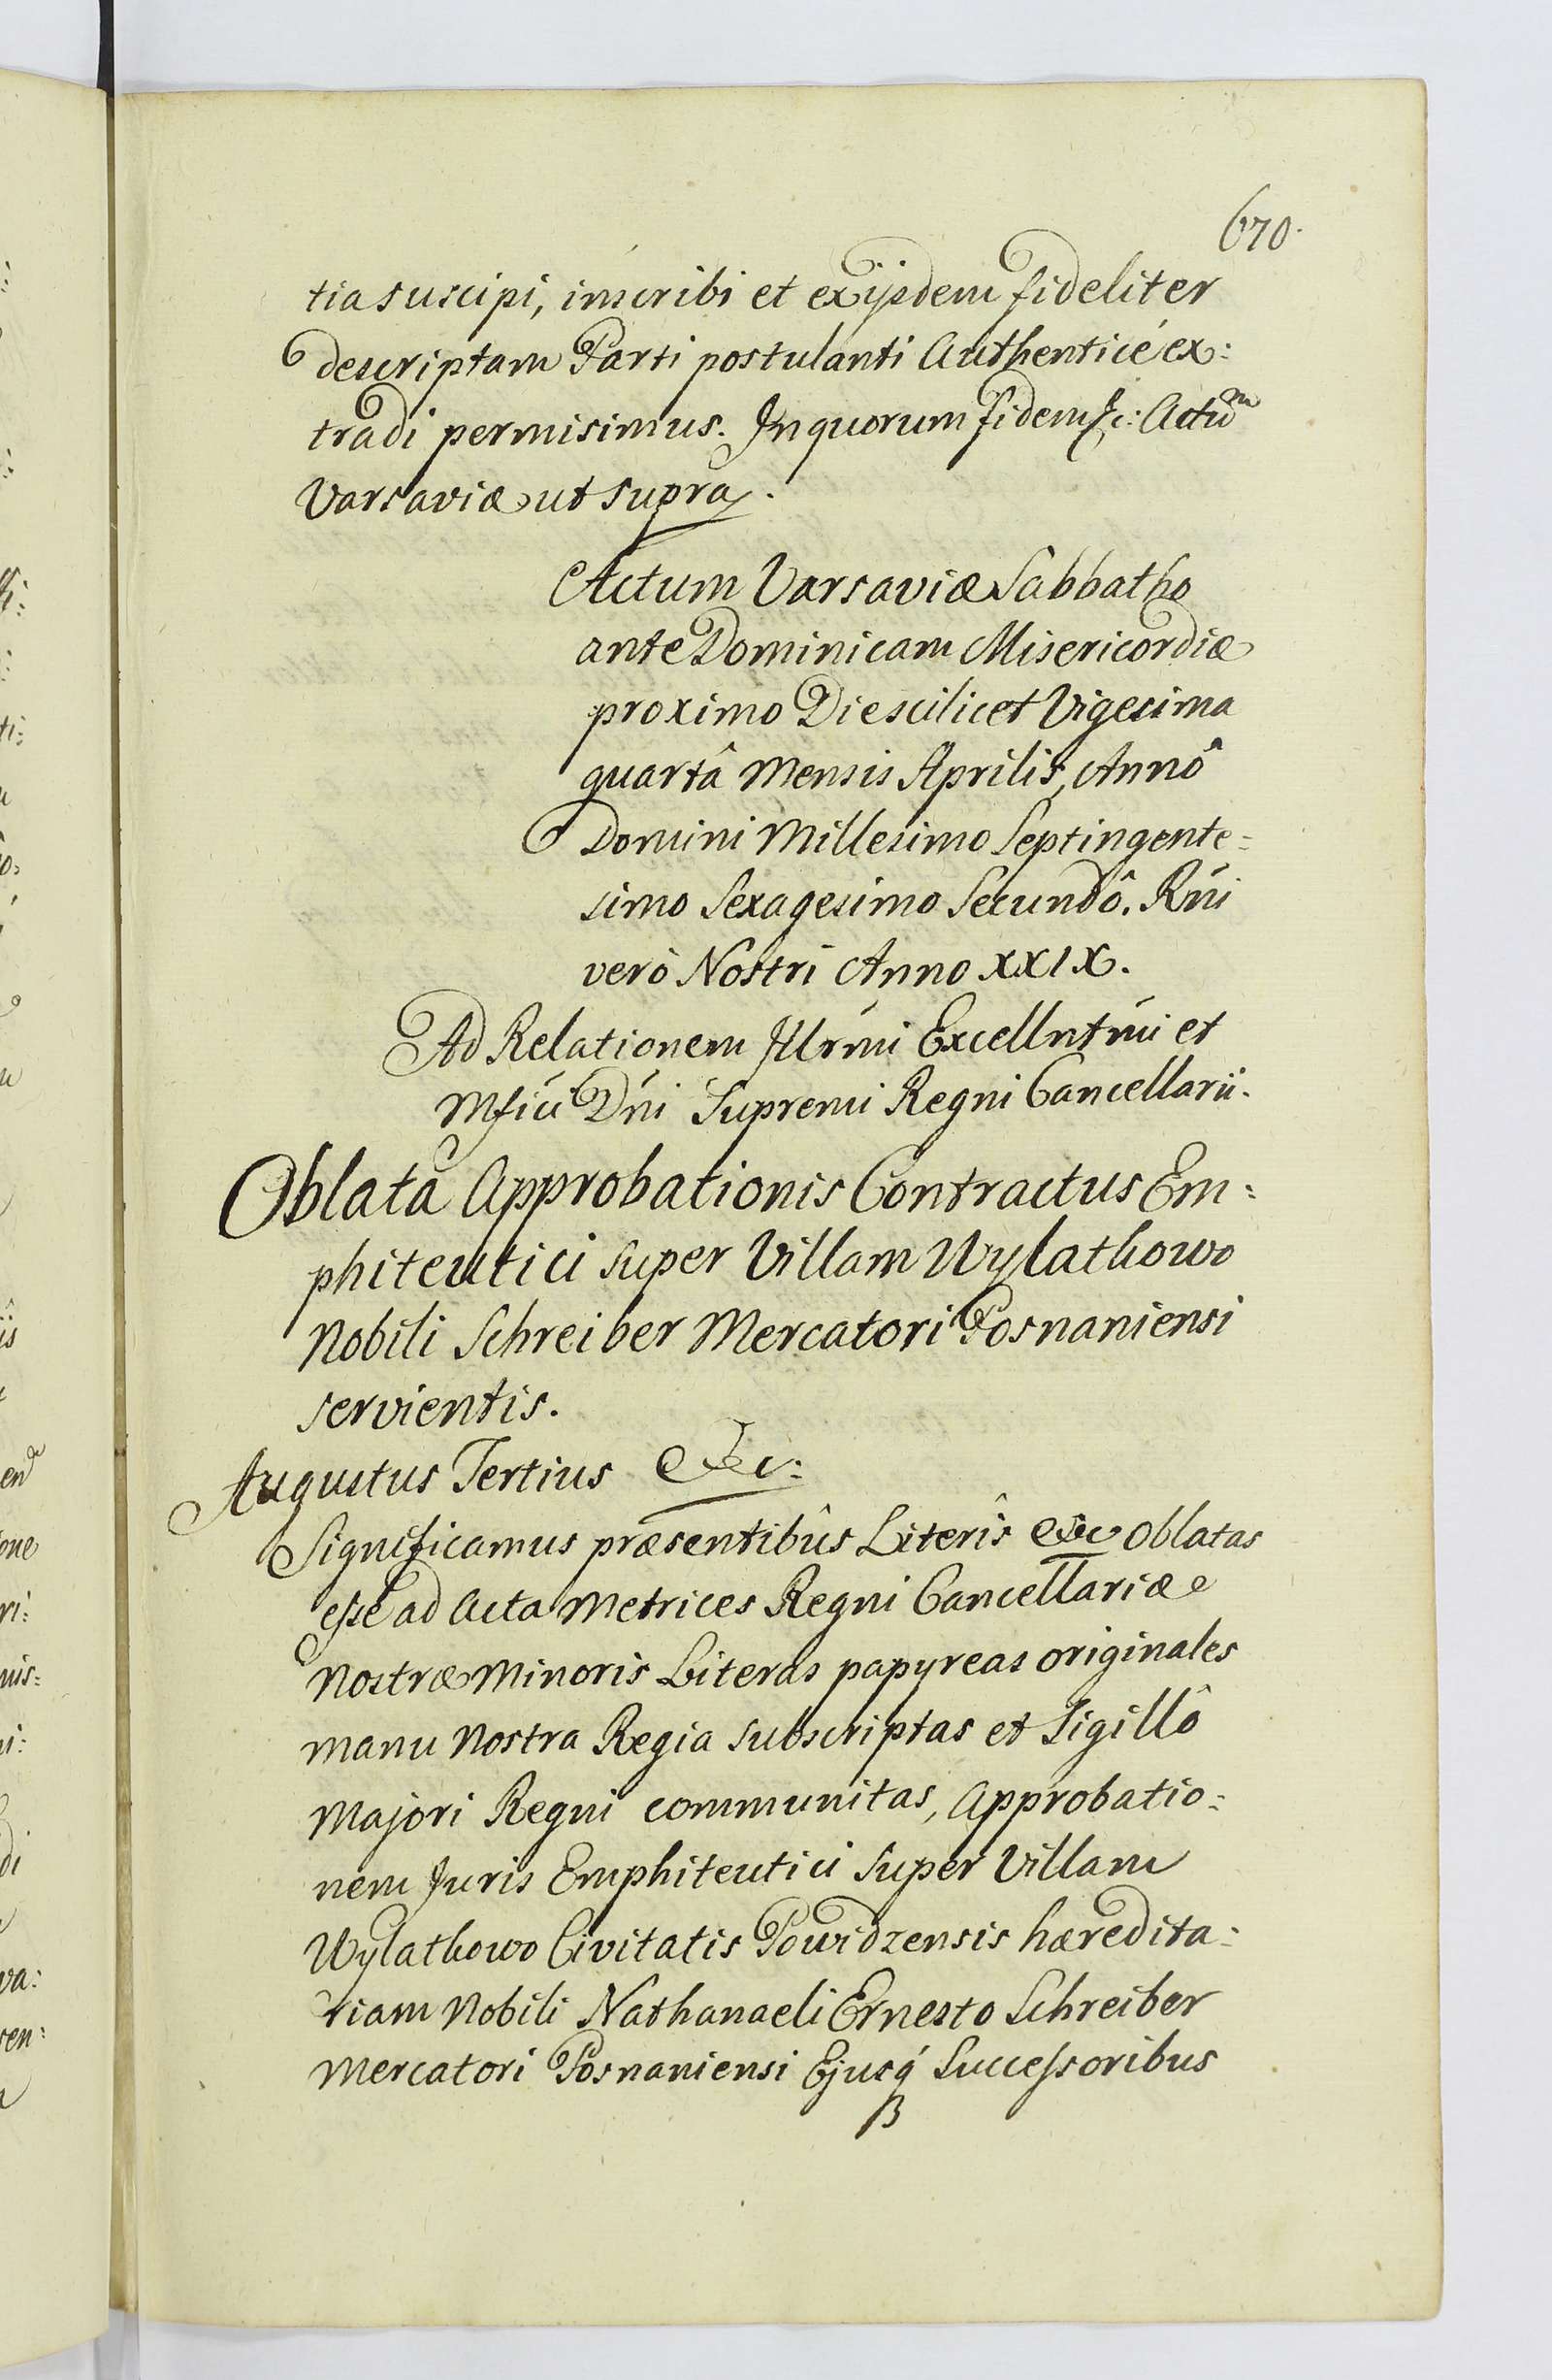 670.
tia suscipi, inscribi et ex ijsdem fideliter
descriptam Parti postulanti Authenticé ex:
tradi permisimus. In quorum fidem &c: Actum
Varsaviæ ut supra.
Actum Varsaviæ Sabbatho
ante Dominicam Misericordiæ
proximo Die scilicet Vigesima
quartâ Mensis Aprilis, Annô
Domini Millesimo Septingente=
simo Sexagesimo Secundô. Rńi
verò Nostri Anno XXIX.
Ad Relationem Illrḿi Excellntḿi et
Mfici Dńi Supremi Regni Cancellarii.
Oblata Approbationis Contractus Em=
phiteutici super Villam Wylathowo
Nobili Schreiber Mercatori Posnaniensi
servientis.
Augustus Tertius &c:
Significamus præsentibûs Literîs &c Oblatas
esse ad Acta Metrices Regni Cancellariæ
Nostræ Minoris Literas papyreas originales
manu Nostra Regia subscriptas et Sigillô
Majori Regni communitas, Approbatio=
nem Juris Emphiteutici super Villam
Wylathowo Civitatis Powidzensis hæredita=
riam Nobili Nathanaeli Ernesto Schreiber
Mercatori Posnaniensi Ejusq́ Successoribus